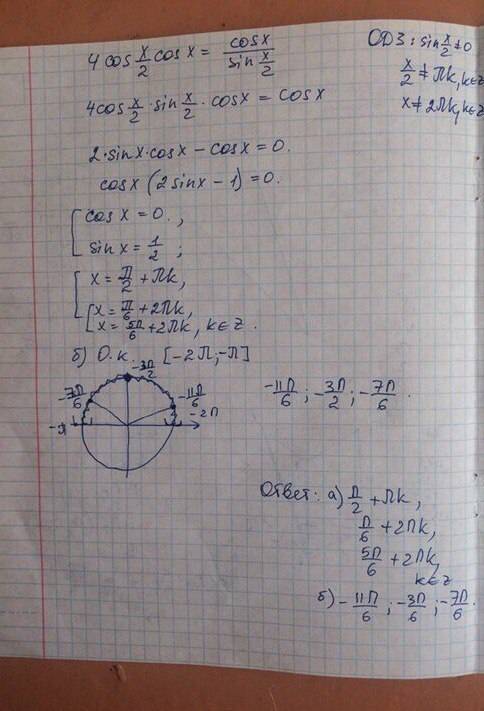 4 cos x/2 cos x = cos x / sin x/2
ОДЗ: sin x/2 ≠ 0
x/2 ≠ Пk, k∈z
x ≠ 2Пk, k∈z
4cos x/2 · sin x/2 · cos x = cos x
2·sin x·cos x − cos x = 0.
cos x (2 sin x − 1) = 0.
[ cos x = 0.,
sin x = 1/2 ;
[ x = П/2 + Пk,
[ x = П/6 + 2Пk,
x = 5П/6 + 2Пk, k∈z.
б) О.к. [−2П; −П]
−3П/2
−7П/6
−11П/6
−2П
−П
−11П/6 ; −3П/2 ; −7П/6 .
Ответ: а) П/2 + Пk,
П/6 + 2Пk,
5П/6 + 2Пk,
k∈z
б) −11П/6 ; −3П/6 ; −7П/6 .